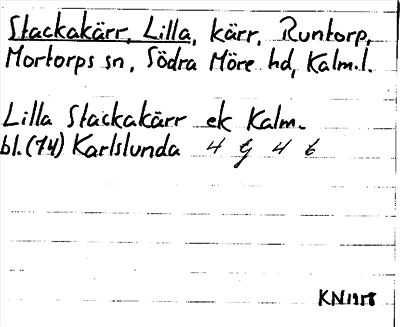 Stackakärr, Lilla, kärr, Runtorp,
Mortorps sn, Södra Möre hd, Kalm.l.
Lilla Stackakärr ek Kalm.
bl.(74) Karlslunda 4 g 4 b